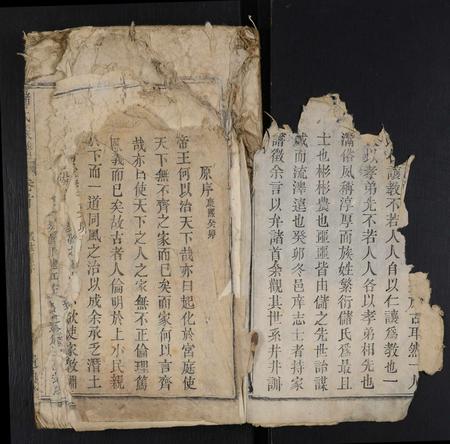 原序康熙癸卯
帝王何以治天下哉亦曰起化於宮庭使
天下無不齊之家而已矣而家何以言齊
哉亦曰使天下之人之家無不正倫理篤
恩義而已矣故古者人倫明於上小民親
於下而一道同風之治以成余承乏潛土
欲使家敦
言耳然一人
仁讓教不若人人自以仁讓為教也一
以孝弟先不若人人各以孝弟相先也
潛俗夙稱淳厚而族姓繁衍儲氏為最且
士也彬彬農也噩噩皆由儲之先世詒謀
咸而流澤遠也癸卯冬邑庠志士者持家
譜徵余言以弁諸首余觀其世系井井訓